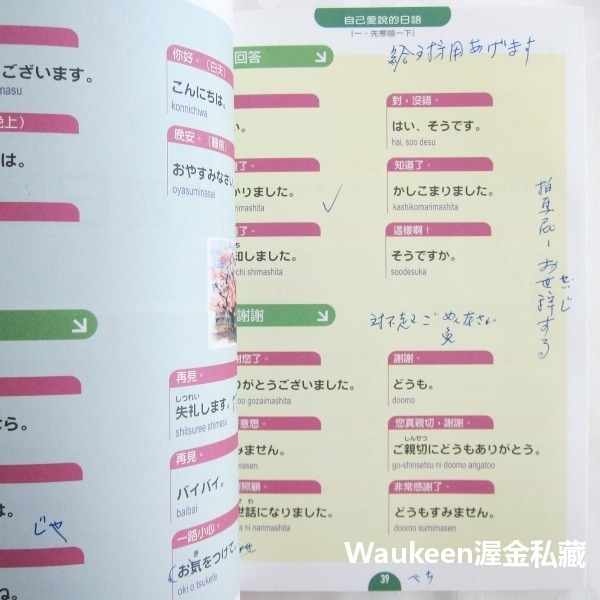 ございます。
masu
晚上）
は。
なら。
は。
じゃ
ね。
你好。（白天）
こんにちは。
konnichiwa
晚安。（睡前）
おやすみなさい
oyasuminasai
再見。
しつれい
失礼します。
shitsuree shimasu
再見。
バイバイ。
baibai
一路小心。
き
（お）気をつけて。
oki o tsukete
自己愛說的日語
[一、先寒暄一下]
回答
給予採用あげます
い。
對，沒錯。
はい、そうです。
hai, soo desu
了。
かりました。
rimashita
知道了。
かしこまりました。
kashikomarimashita
了。
ち
知しました。
chi shimashita
這樣啊！
そうですか。
soodesuka
拍馬屁ーお世辞する
せじ
謝謝
対不起 ごめんなさい
您了。
りがとうございました。
oo gozaimashita
謝謝。
どうも。
doomo
意思。
みません。
masen
您真親切，謝謝。
しんせつ
ご親切にどうもありがとう。
go-shinsetsu ni doomo arigatoo
照顧。
わ
世話になりました。
a ni narimashita
非常感謝了。
どうもすみません。
doomo sumimasen
Waukeen渥金私藏
39